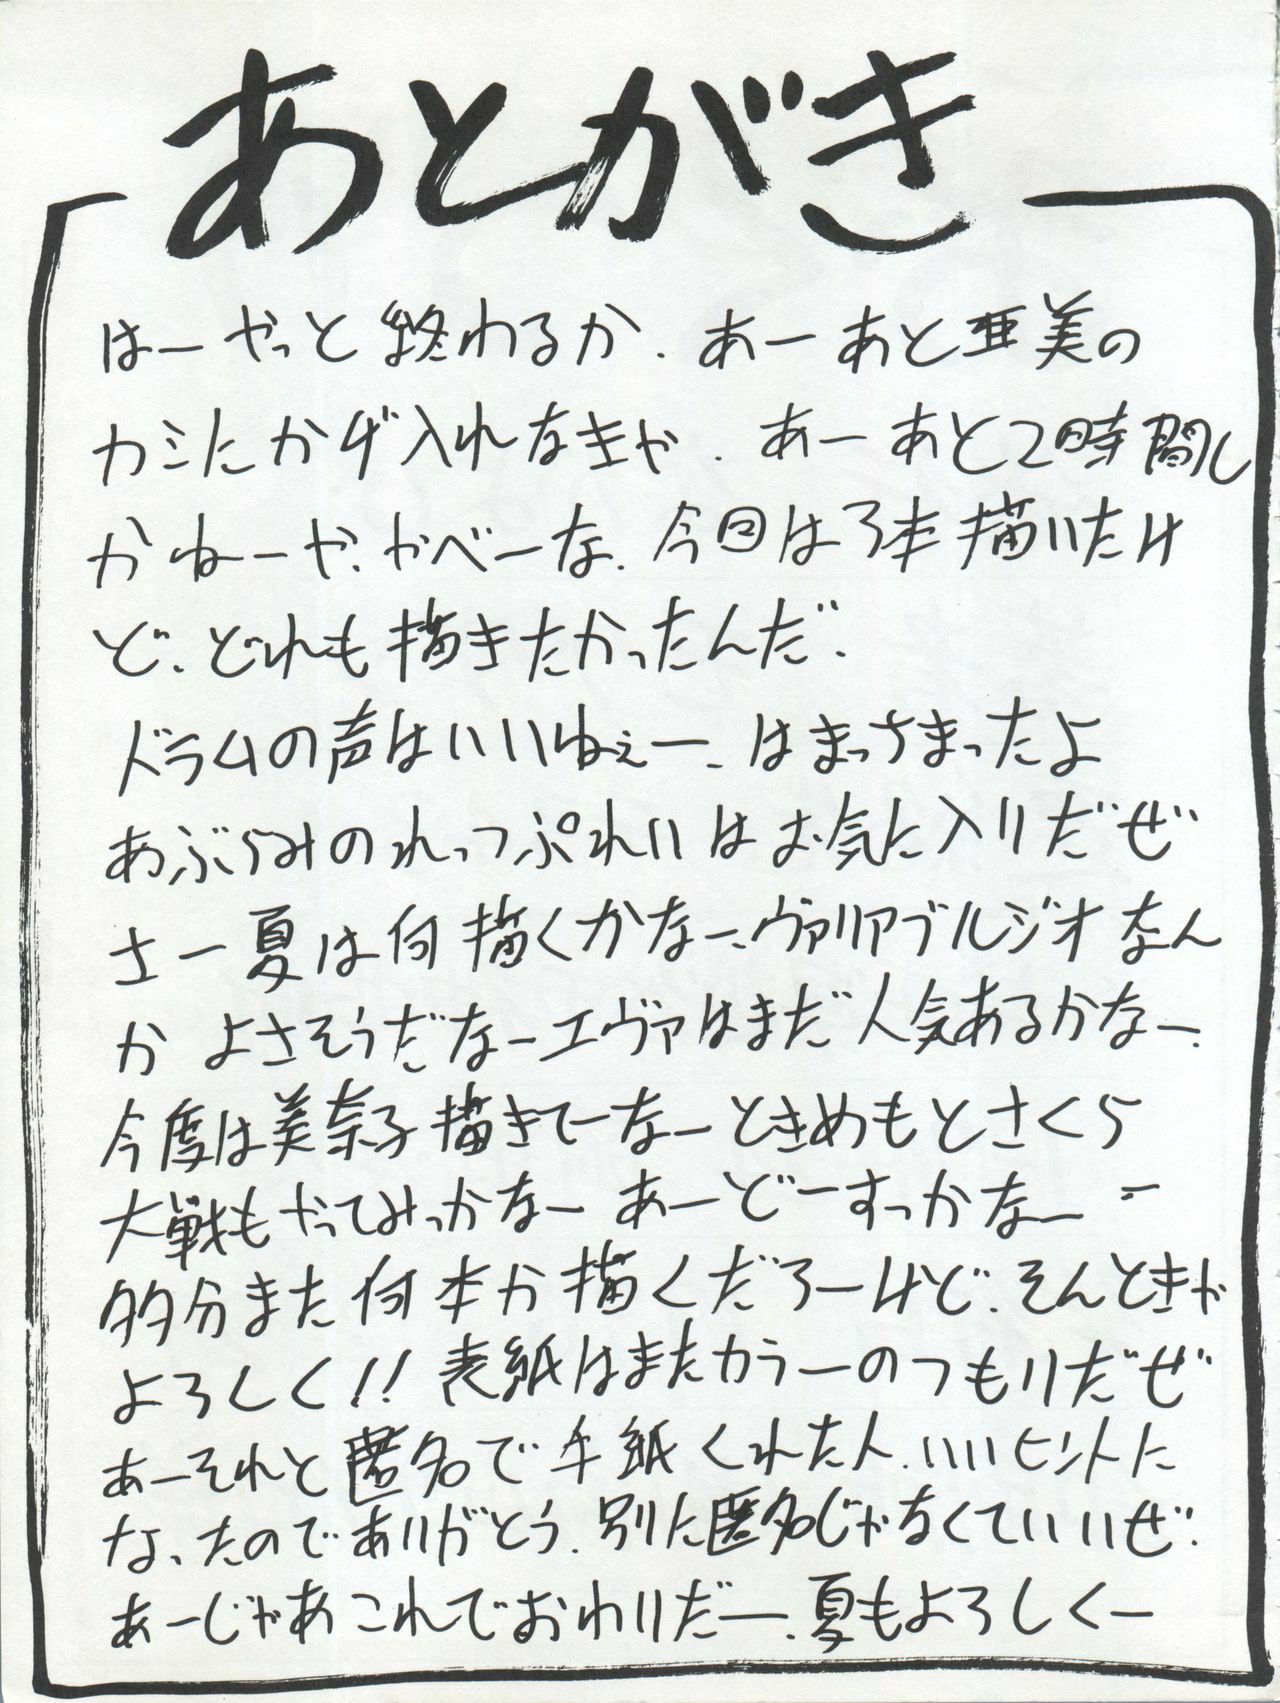 あとがき
はーやっと終わるか．あーあと亜美の
カミにかげ入れなきゃ．あーあと2時間し
かねーや、かべーな．今回は3本描いたけ
ど、どれも描きたかったんだ．
ドラムの声はいいねぇー、はまっさまったよ
あぶらみのれっつぷれいはお気に入りだぜ
さー夏は何描くかなー、ヴァリアブルジオなん
か よさそうだなーエヴァはまだ人気あるかなー．
今度は美奈子描きてーなーときめもとさくら
大戦もやってみっかなー あーどーすっかなー
多分また何本か描くだろーけど、そんときゃ
よろしく!! 表紙はまたカラーのつもりだぜ
あーそれと匿名で手紙くれた人．いいヒントに
なったのでありがとう．別に匿名じゃなくていいぜ．
あーじゃあこれでおわりだー．夏もよろしくー